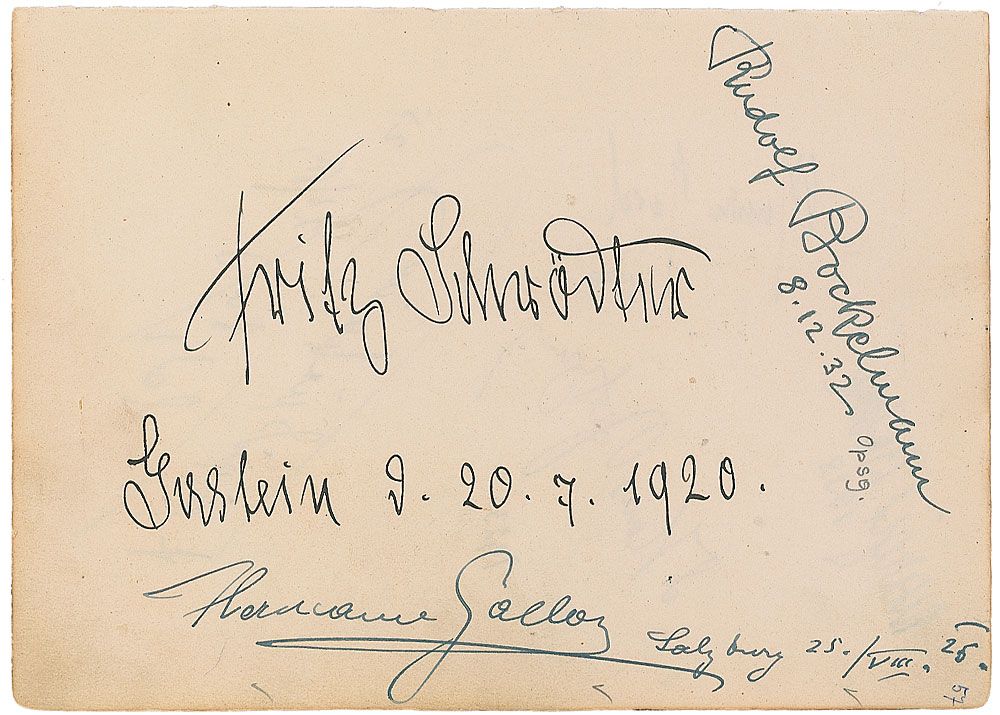 Rudolf Bockelmann
8.12.32
opsg.
Fritz Schrödter
Gastein d. 20.7.1920.
Hermann Gallos
Salzburg 25./VIII. 26.
57